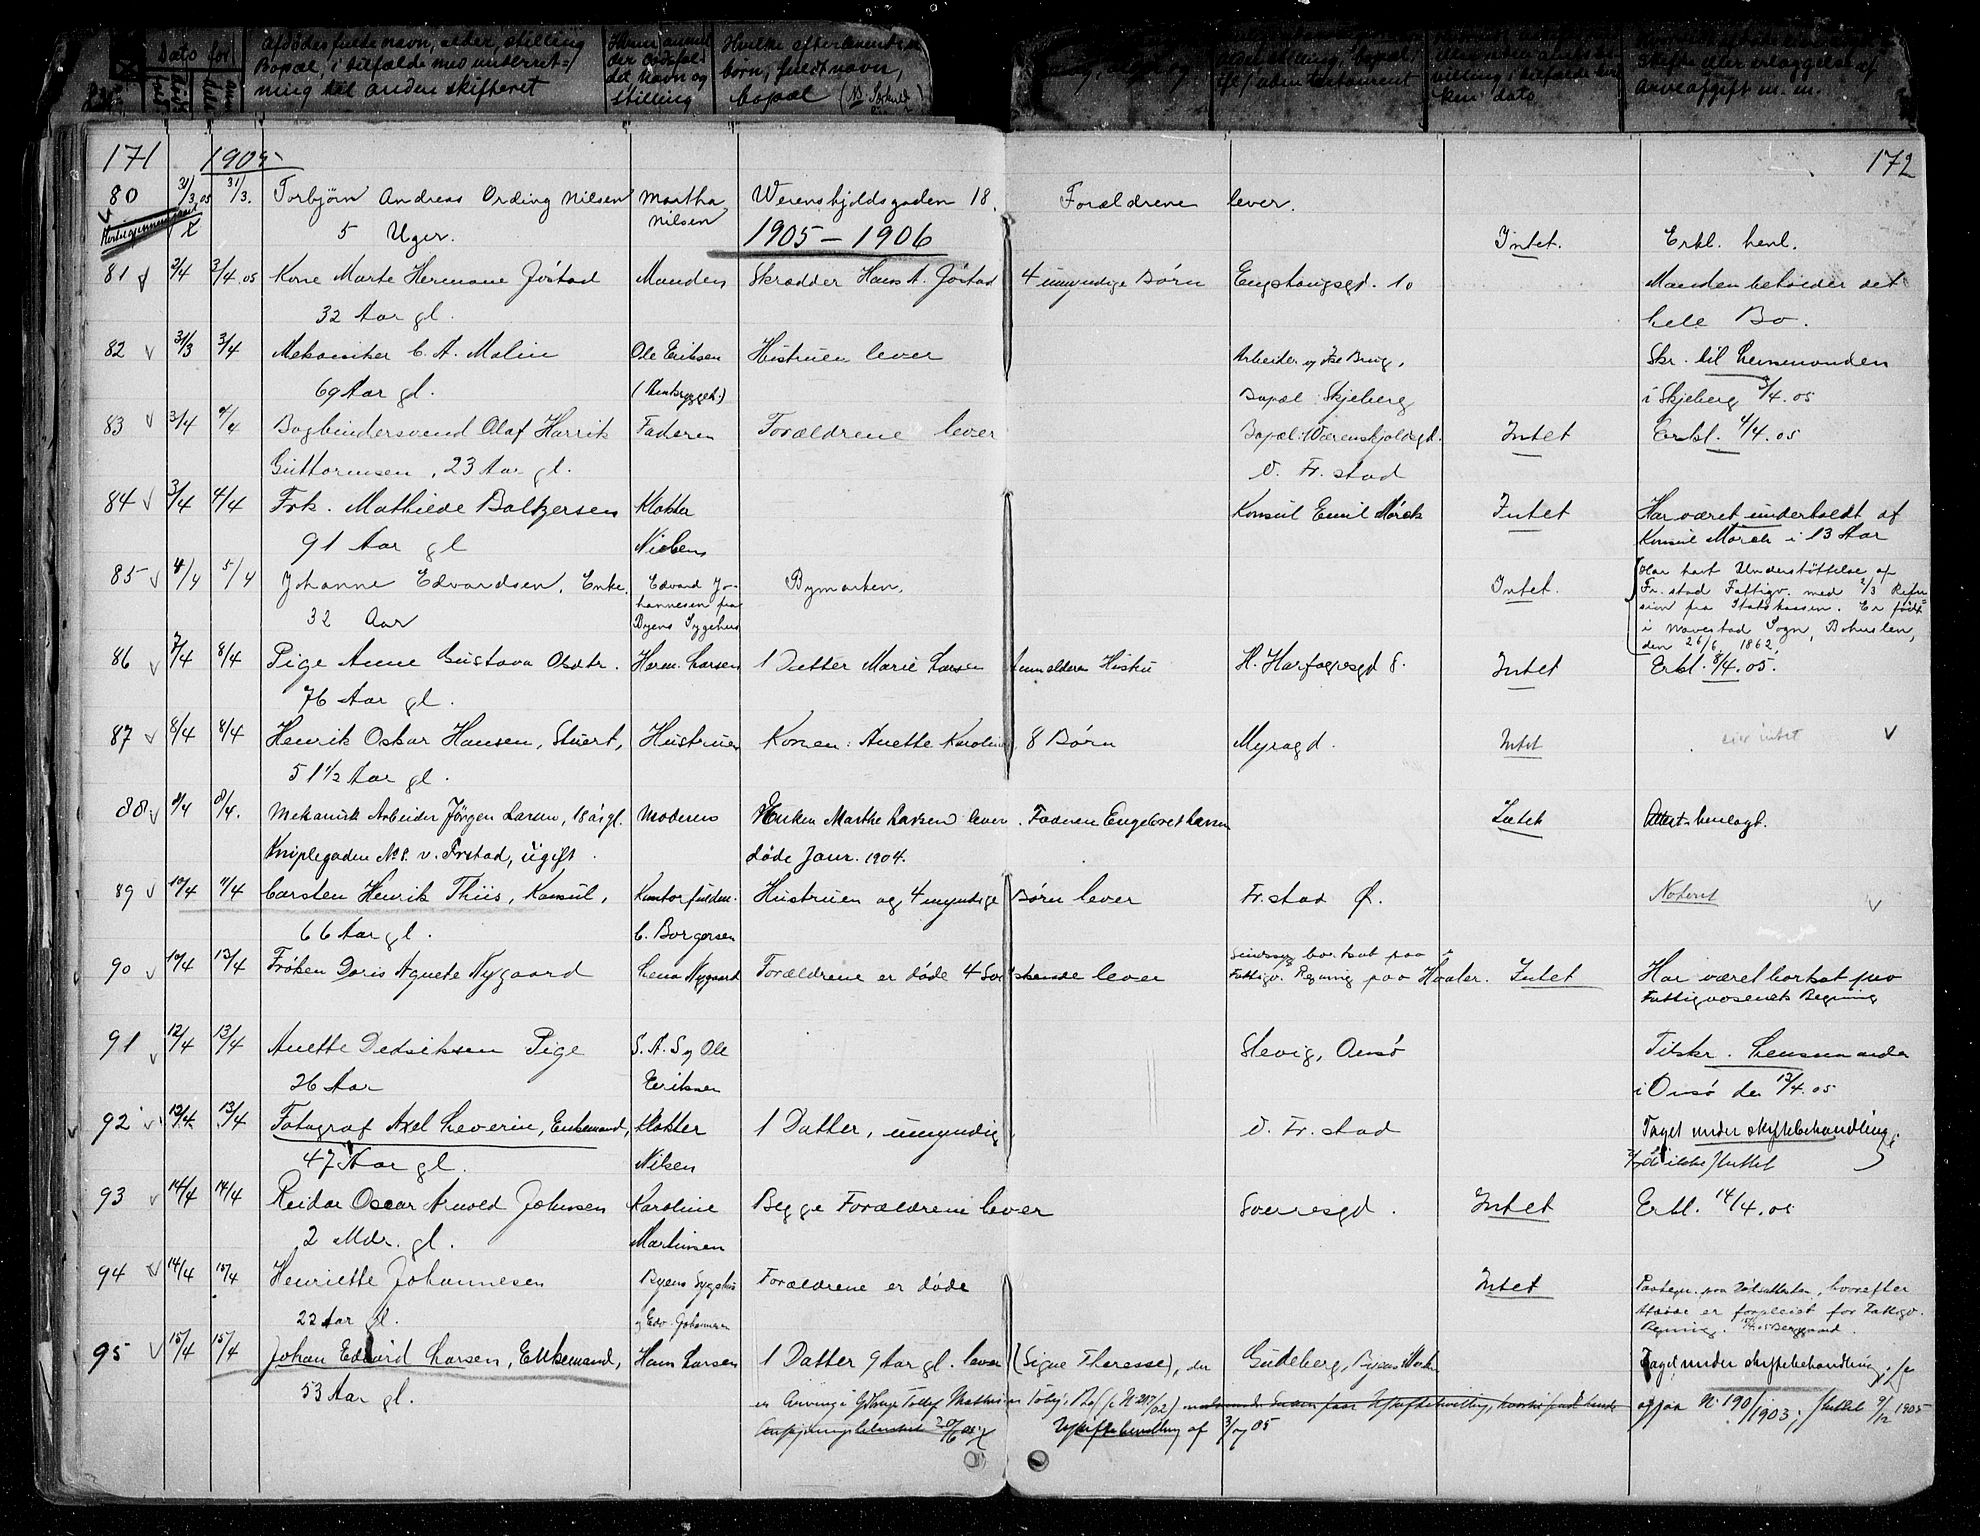 Dato for
Afdødes fulde navn, alder, stilling
Bopæl, i tilfælde med underret-
ning til anden skifteret
Hvem anmel
der dødsfal
det navn og
stilling
Hvilke efterlevende
børn, fuldt navn,
bopæl
uden testament
villing i tilfælde
ken dato
Skifte eller erlæggelse af
Arveafgift m. m.
171 1905 172
80 31/3 05 31/3. Torbjørn Andreas Ording Nilsen Martha Werenskjoldsgaden 18. Forældrene lever.
5 Uger. Nilsen 1905 – 1906 Intet. Erkl. henl.
81 2/4 3/4 05 Kone Marte Hermane Jöstad Manden Skrædder Hans A. Jöstad 4 umyndige Børn Enghaugsgd. 10 Manden beholder det
32 Aar gl. hele Bo.
82 31/3 3/4 Mekaniker C. A. Malin Ole Eriksen Hustruen lever Arbeider Brug, Skr. til Lensmanden
69 Aar gl. Bopæl Skjeberg i Skjeberg 3/4. 05
83 3/4 4/4 Bogbindersvend Olaf Henrik Faderen Forældrene lever Bopæl: Værenskjoldsgd. Intet Erkl. 4/4. 05
Guttormsen, 23 Aar gl. V. Fr. stad
84 3/4 4/4 Frk. Mathilde Baltzersen Klokker Konsul Emil Mörch Intet Har været underholdt af
91 Aar gl Nielsen Konsul Mörch i 13 Aar
85 4/4 5/4 Johanne Edvardsen, Enke. Edvard Jo- Bymarken, Intet. Har havt Understöttelse af
32 Aar hannesen fra Fr.stad Fattigv. med 2/3 Refu-
Byens Sygehus sion fra Statskassen. Er født
i Navestad Sogn, Bohuslen,
den 26/6 1862,
86 7/4 8/4 Pige Anne Gustava Olsdtr. Herm. Larsen 1 Datter Marie Larsen H. Hartogsgd 8. Intet Erkl. 8/4. 05.
76 Aar gl.
87 8/4 8/4 Henrik Oskar Hansen, Stuert, Hustruen Konen: Anette Karoline 8 Børn Myragd. Intet eier intet
51 1/2 Aar gl.
88 8/4 8/4. Mekanisk Arbeider Jörgen Larsen, 18 år gl. Moderen Enken Marthe Larsen lever. Faderen Engebret Larsen Intet Attest henlagt.
Kniplegaden No 8. v. Frstad, ugift. døde Janr. 1904.
89 10/4 11/4 Carsten Henrik Thiis, Konsul, Kontorfuldm. Hustruen og 4 myndige Børn lever Fr. stad Ø. Notert
66 Aar gl. C. Borgersen
90 10/4 12/4 Fröken Doris Agnete Nygaard Lena Nygaard Forældrene er døde 4 Søskende lever Sindssyg bortsat paa
Fattigv. Regning paa Hvaler. Intet Har været bortsat paa
Fattigvæsenets Regning
91 12/4 13/4 Anette Dedriksen Pige S. A. Syg Ole Slevig, Onsö Tilskr. Lensmanden
26 Aar Eriksen i Onsö den 13/4. 05
92 12/4 13/4 Fotograf Axel Leverin, Enkemand, Klokker 1 Datter, umyndig V. Fr. stad Taget under skiftebehandling.
47 Aar gl. Nilsen
93 14/4 14/4 Reidar Oscar Arnold Johnsen Karoline Begge Forældrene lever Sverresgd. Intet Erkl. 14/4. 05
2 Mdr. gl. Martinsen
94 14/4 15/4 Henriette Johannesen Byens Sygehus Forældrene er døde Intet hvorefter
22 Aar gl. og Edv. Johannesen er forpleiet for Fattigv.
Regning.
95 15/4 15/4 Johan Edvard Larsen, Enkemand, Hans Larsen 1 Datter 9 Aar gl. lever (Signe Therese), der Gudeberg, Taget under skiftebehandling; se
53 Aar gl. er Arving i ogsaa No 190/1903; sluttet 9/12 1905
20/6 05 af 3/7 05